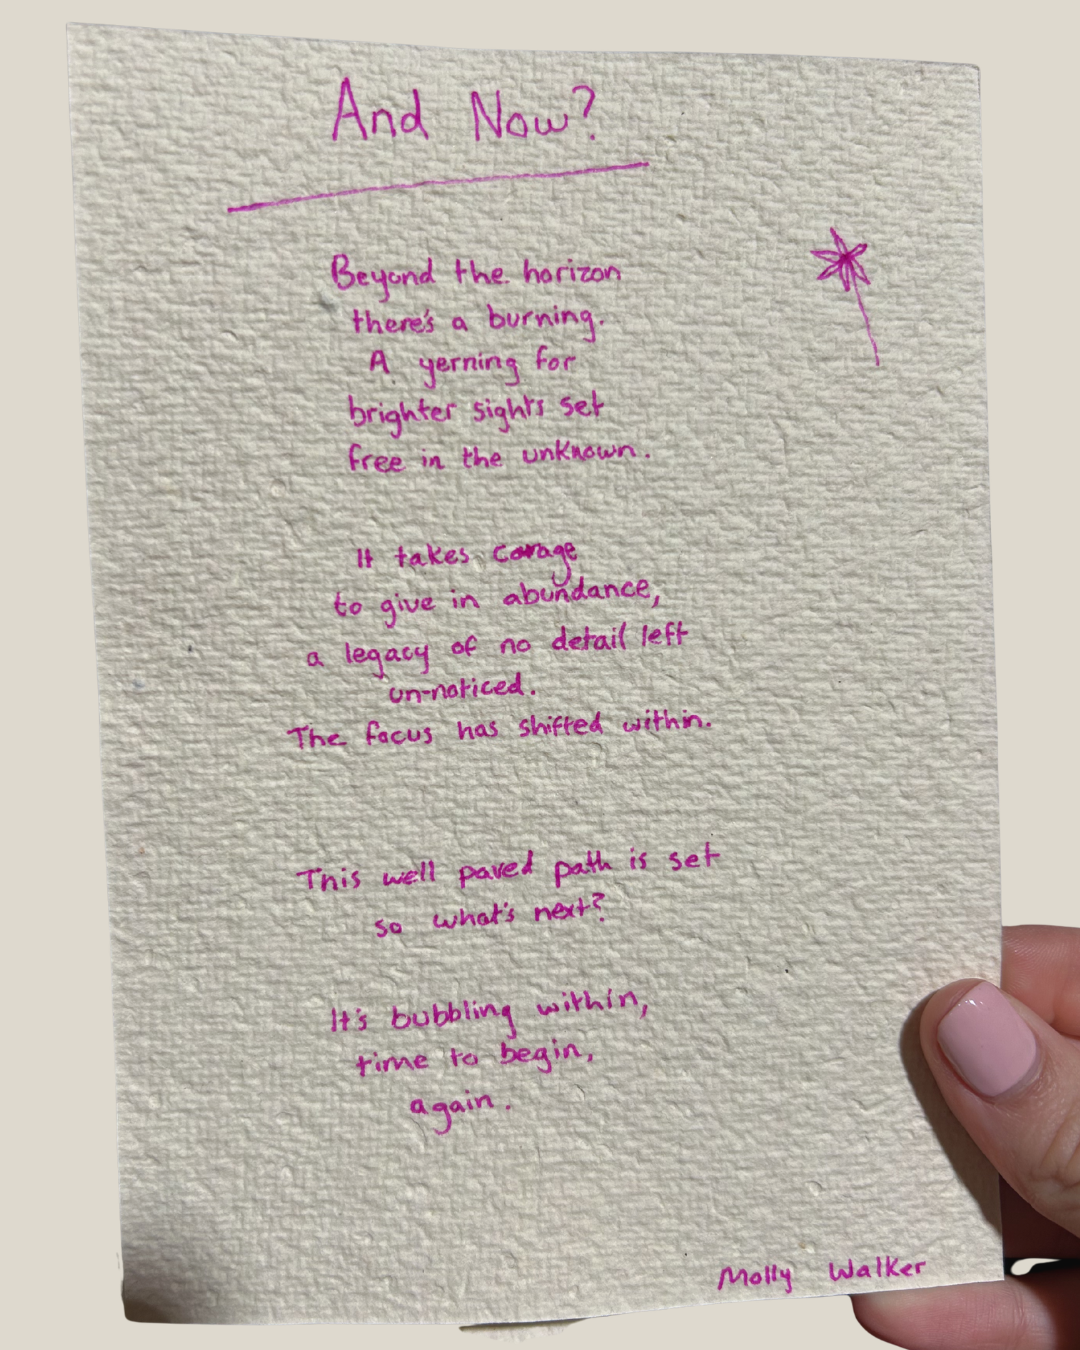 And Now?
Beyond the horizon
there's a burning.
A yerning for
brighter sights set
free in the unknown.
It takes corage
to give in abundance,
a legacy of no detail left
un-noticed.
The focus has shifted within.
This well paved path is set
so what's next?
It's bubbling within,
time to begin,
again.
Molly Walker